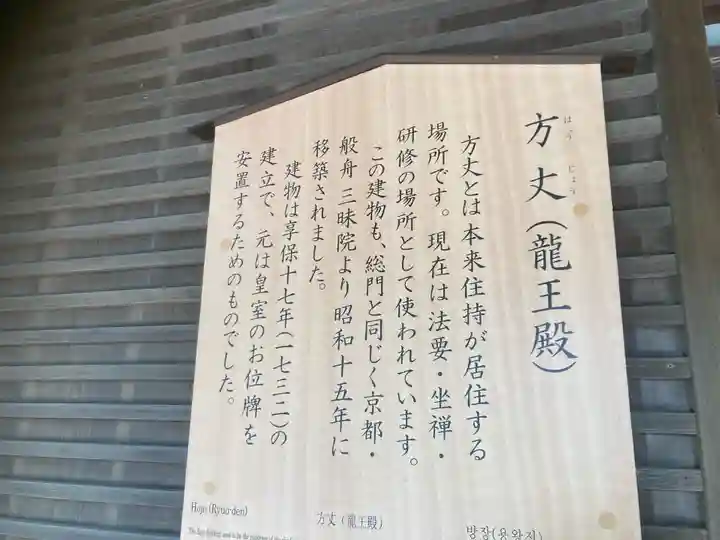 方丈(龍王殿)
ほう じょう
方丈とは本来住持が居住する
場所です。現在は法要・坐禅・
研修の場所として使われています。
この建物も、総門と同じく京都・
般舟三昧院より昭和十五年に
移築されました。
建物は享保十七年(一七三二)の
建立で、元は皇室のお位牌を
安置するためのものでした。
Hojo (Ryuo-den)
方丈（龍王殿）
방장(용왕전)